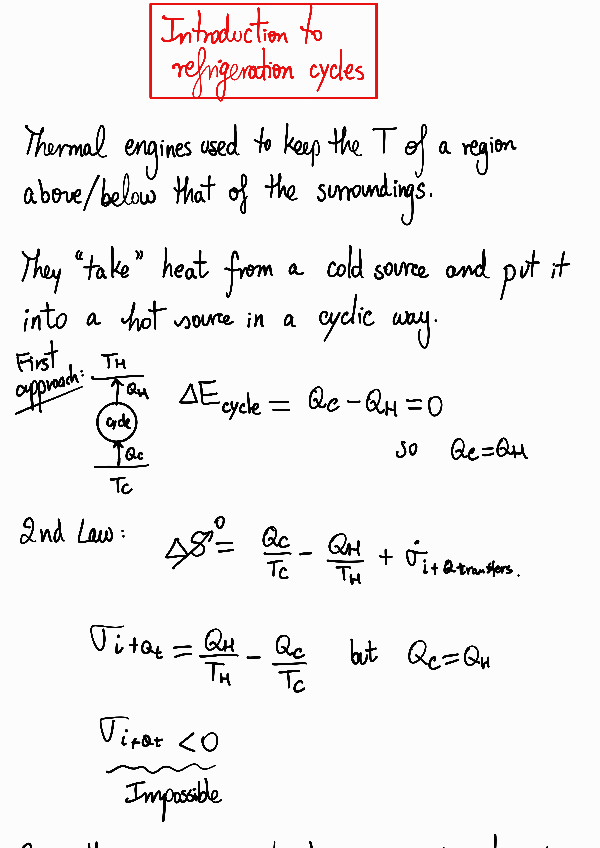 Introduction to
refrigeration cycles
Thermal engines used to keep the T of a region
above/below that of the surroundings.
They "take" heat from a cold source and put it
into a hot source in a cyclic way.
First
approach:
T_H
Q_H
cycle
Q_C
T_C
ΔE_cycle = Q_C - Q_H = 0
so Q_C = Q_H
2nd Law: ΔS^0 = Q_C/T_C - Q_H/T_H + σ̇_i+Qtransfers.
σ_i+Qt = Q_H/T_H - Q_C/T_C but Q_C = Q_H
σ_i+Qt < 0
Impossible